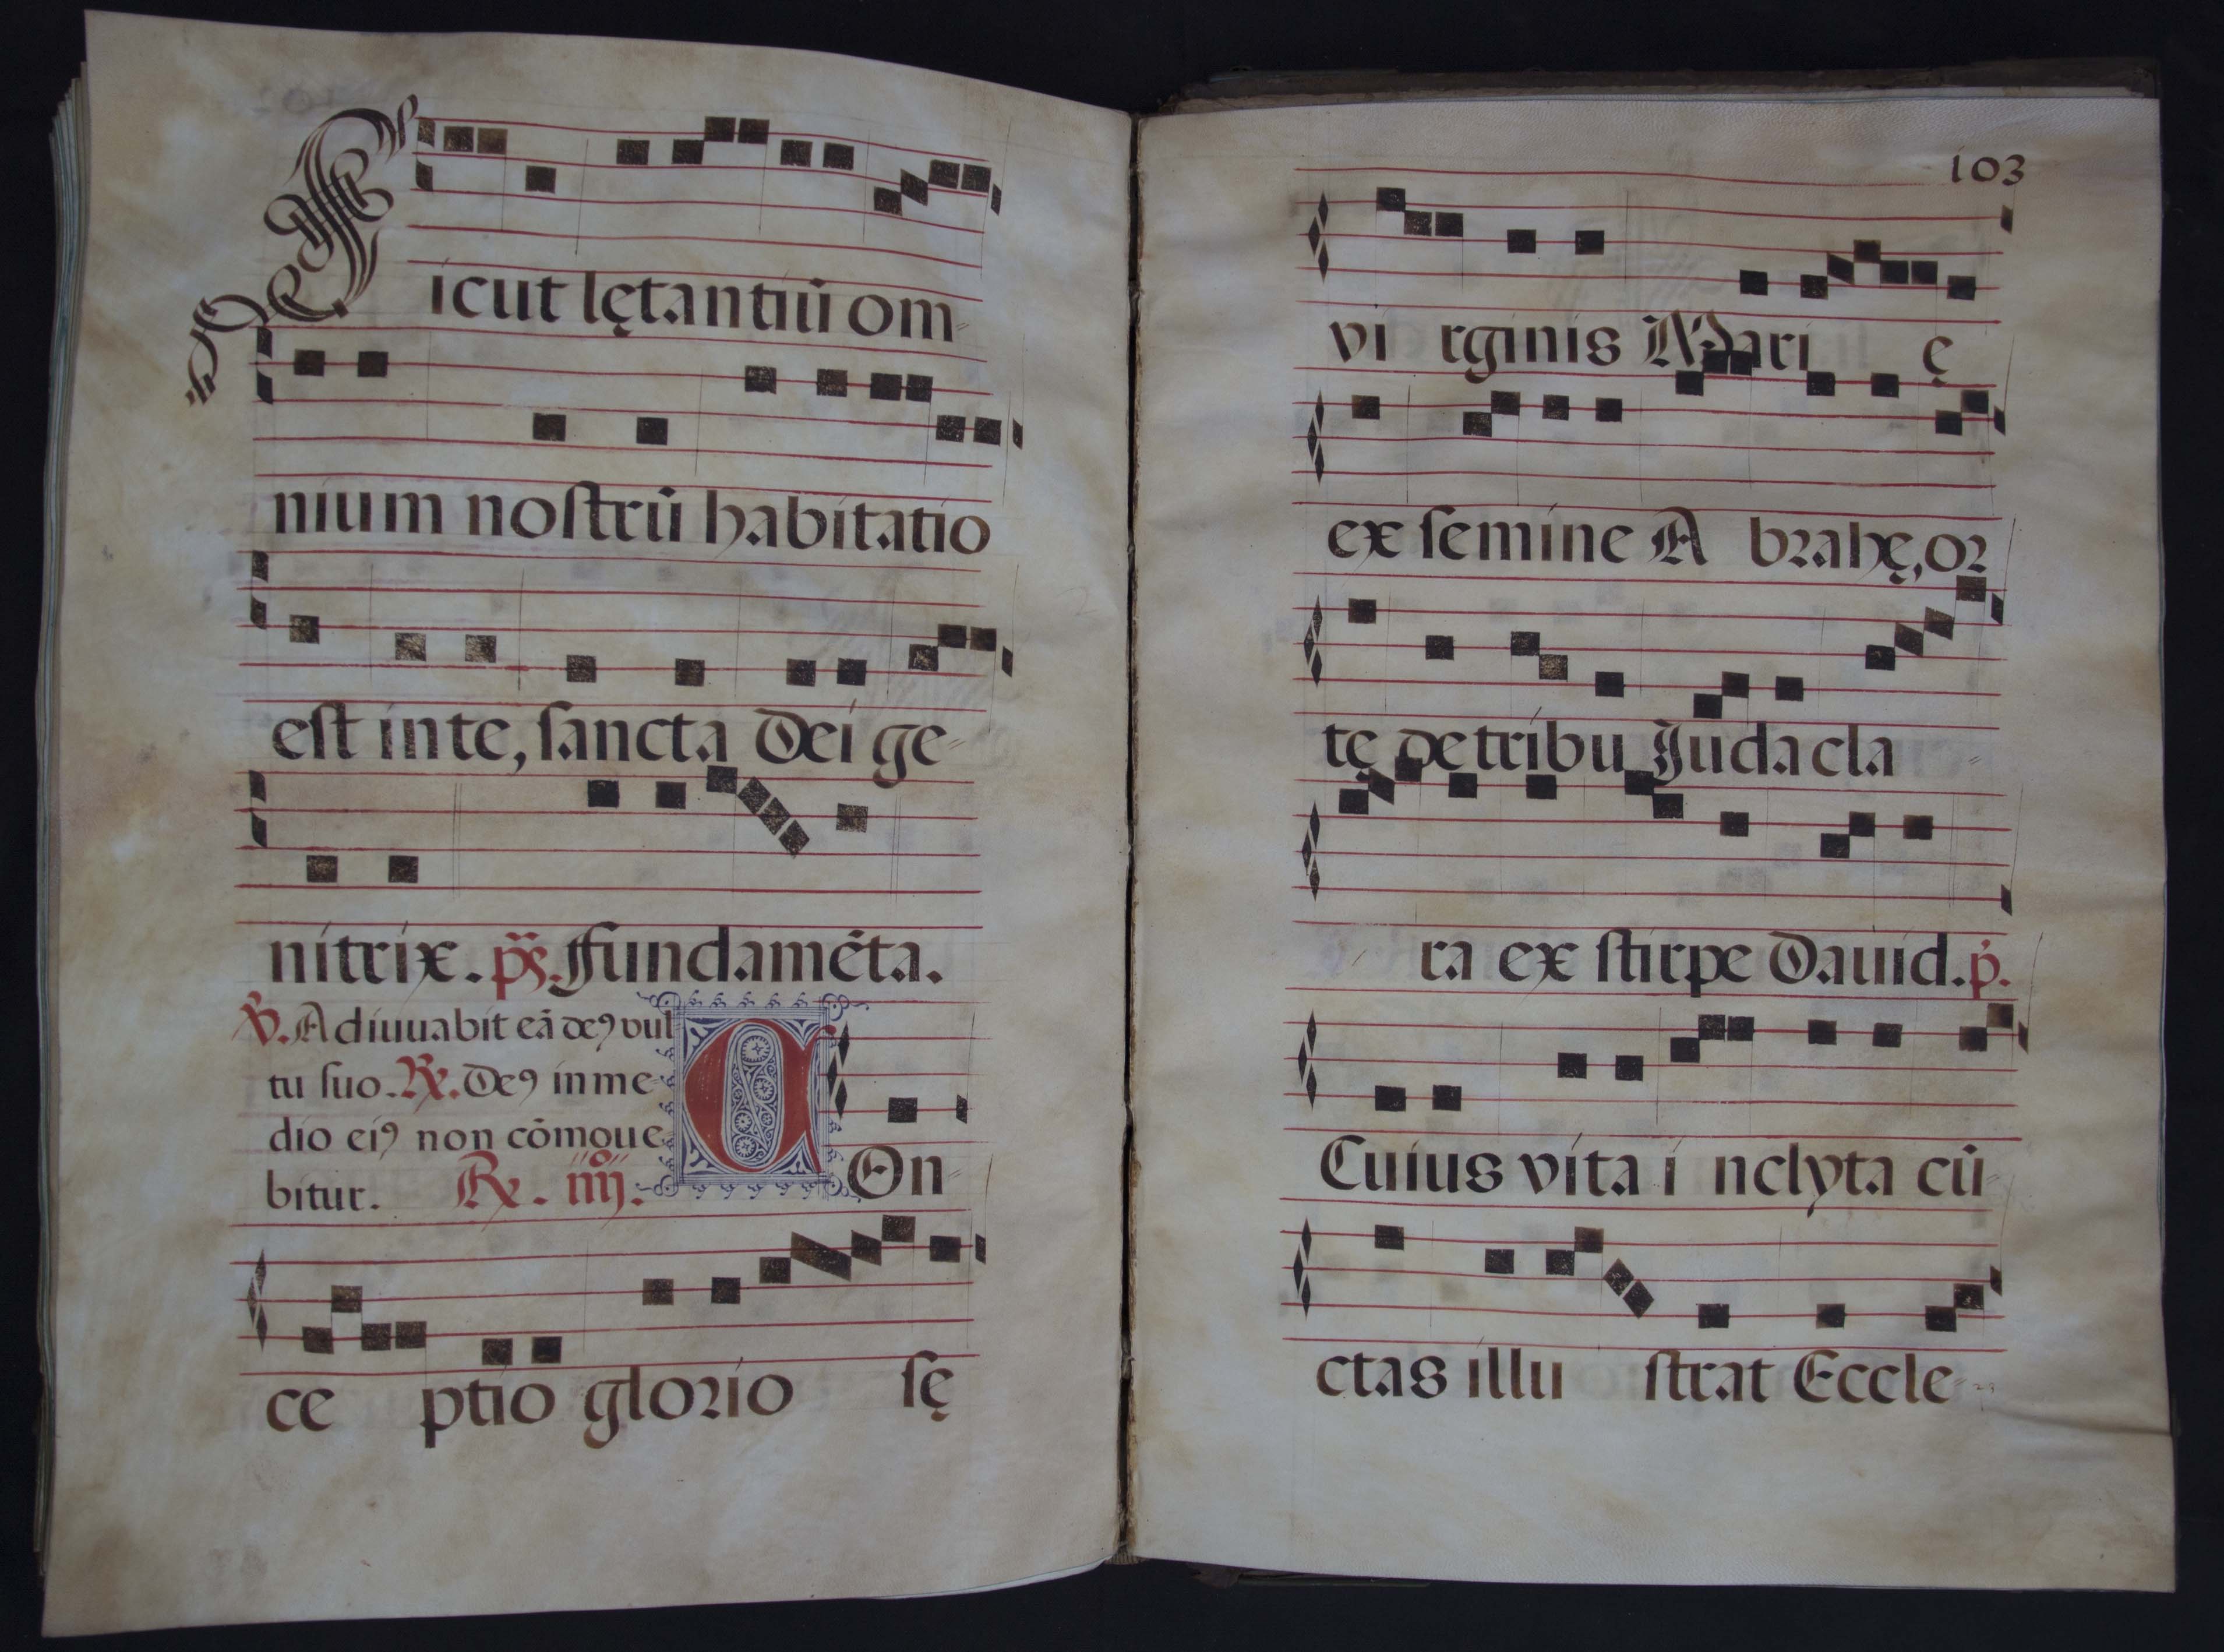 Sicut lętantiũ om-
nium nostrũ habitatio
est in te, sancta Dei ge-
nitrix. ps. Fundamẽta.
℣. Adiuuabit eã deꝰ vul
tu suo. ℟. Deꝰ in me-
dio eiꝰ non cõmoue-
bitur. ℟. iiij.º
COn-
ce ptio glorio sę
103
vi rginis Mari ę
ex semine A brahę, or
tę de tribu Juda cla -
- ra ex stirpe Dauid. p̃.
Cuius vita i nclyta cũ-
ctas illu strat Eccle-